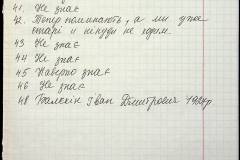 41. Не знає
42. Тепер поминають, а ми уже
старі и нікуди не ходим.
43 Не знає
44 Не знає
45 Наверно знає
46 Не знає
48 Іван Дмитрович 1924р